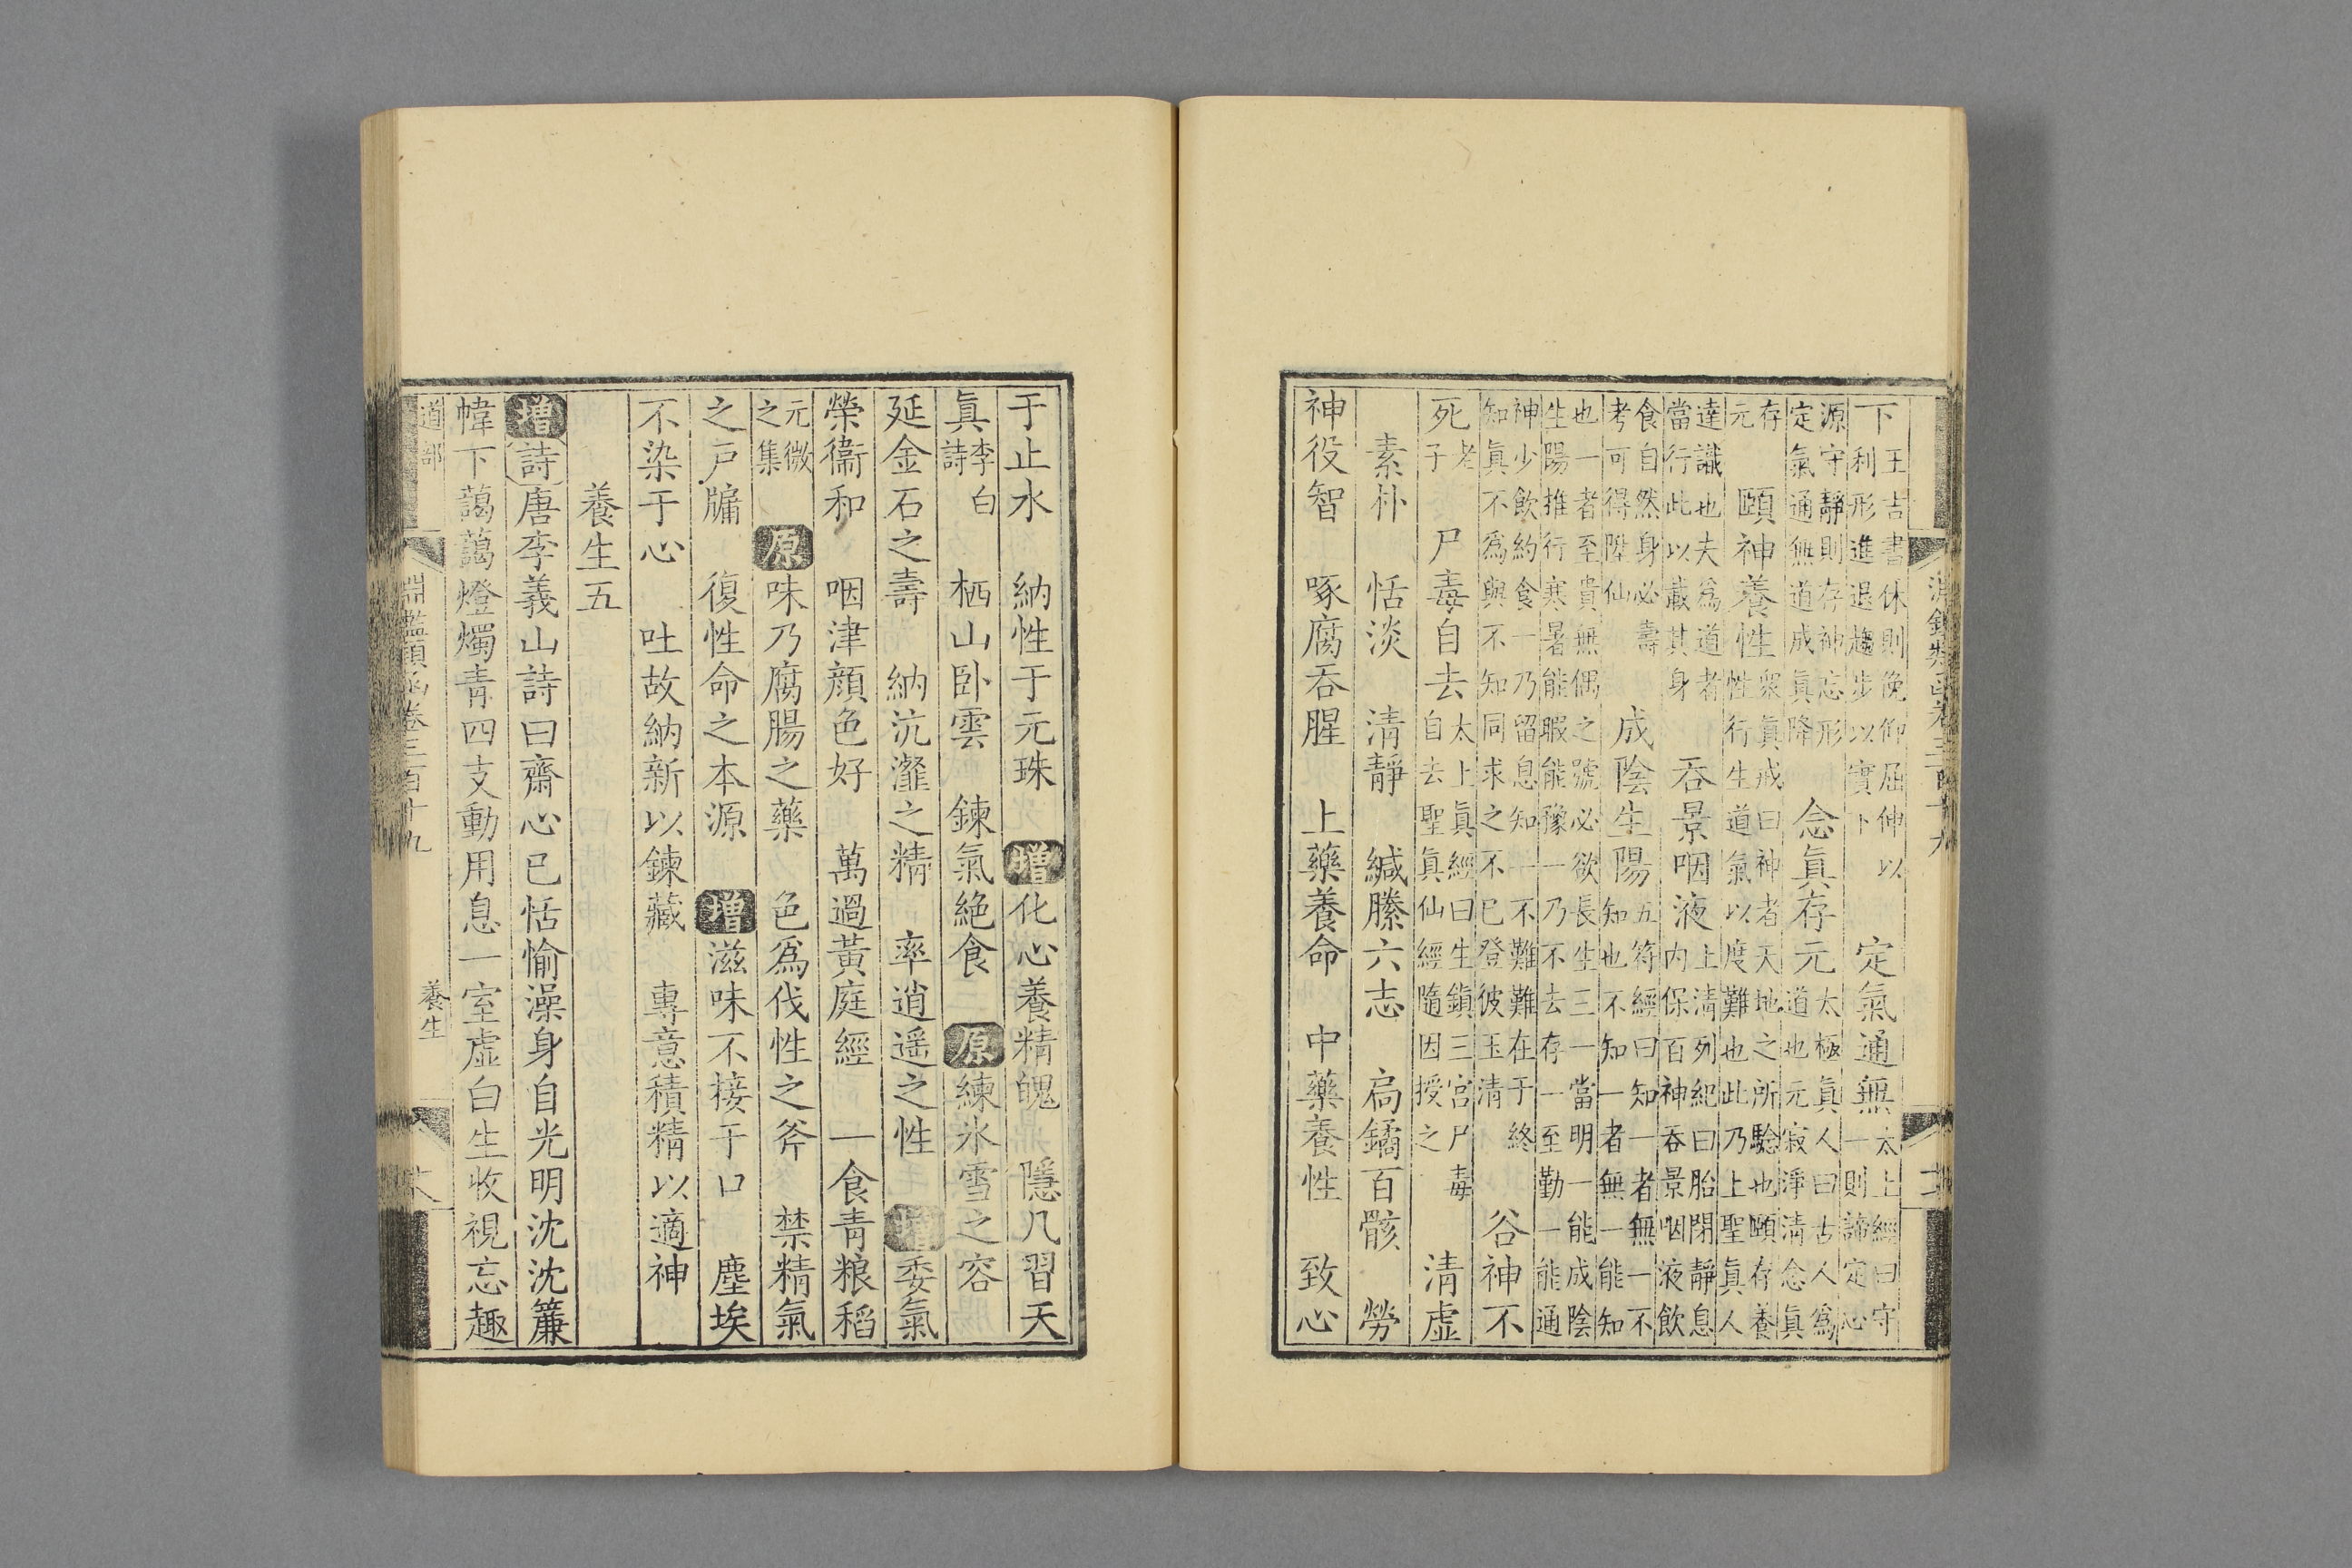 淵鑑類函卷三百十九
下王吉書休則俛仰屈伸以利形進退趨步以實下 定氣通無太上經曰守一則諦定心
源守靜則存神忘形定氣通無道成眞降 念眞存元太極眞人曰古人爲道也元寂淨清念眞
存元 頤神養性衆眞戒曰神者天地之所驗也頤存養性行生道氣以度難也此乃上聖眞人
達識也夫爲道者當行此以藏其身 吞景咽液上清列紀曰胎閉靜息内保百神吞景咽液飲
食自然身必壽考可得陞仙 成陰生陽五符經曰知一者無一不知也不知一者無一能知
也一者至貴無偶之號必欲長生三一當明一能成陰生陽推行寒暑能暇能豫一乃不去存一至勤一能通
神少飲約食一乃留息知一不難難在于終知眞不爲與不知同求之不已登彼玉清 谷神不
死老子 尸毒自去太上眞經曰生鎮三宮尸毒自去聖眞仙經隨因授之 清虛
素朴 恬淡 清靜 緘縢六志 扃鐍百骸 勞
神役智 啄腐吞腥 上藥養命 中藥養性 致心
于止水 納性于元珠 增化心養精魄 隱几習天
眞李白詩 栖山卧雲 鍊氣絶食 原練氷雪之容
延金石之壽 納沆瀣之精 率逍遥之性 增委氣
榮衞和 咽津顔色好 萬過黃庭經 一食青粮稻
元微之集 原味乃腐腸之藥 色爲伐性之斧 禁精氣
之戸牖 復性命之本源 增滋味不接于口 塵埃
不染于心 吐故納新以鍊藏 專意積精以適神
養生五
增詩唐李義山詩曰齋心已恬愉澡身自光明沈沈簾
幃下藹藹燈燭青四支動用息一室虛白生收視忘趣
道部 淵鑑類函卷三百十九 養生